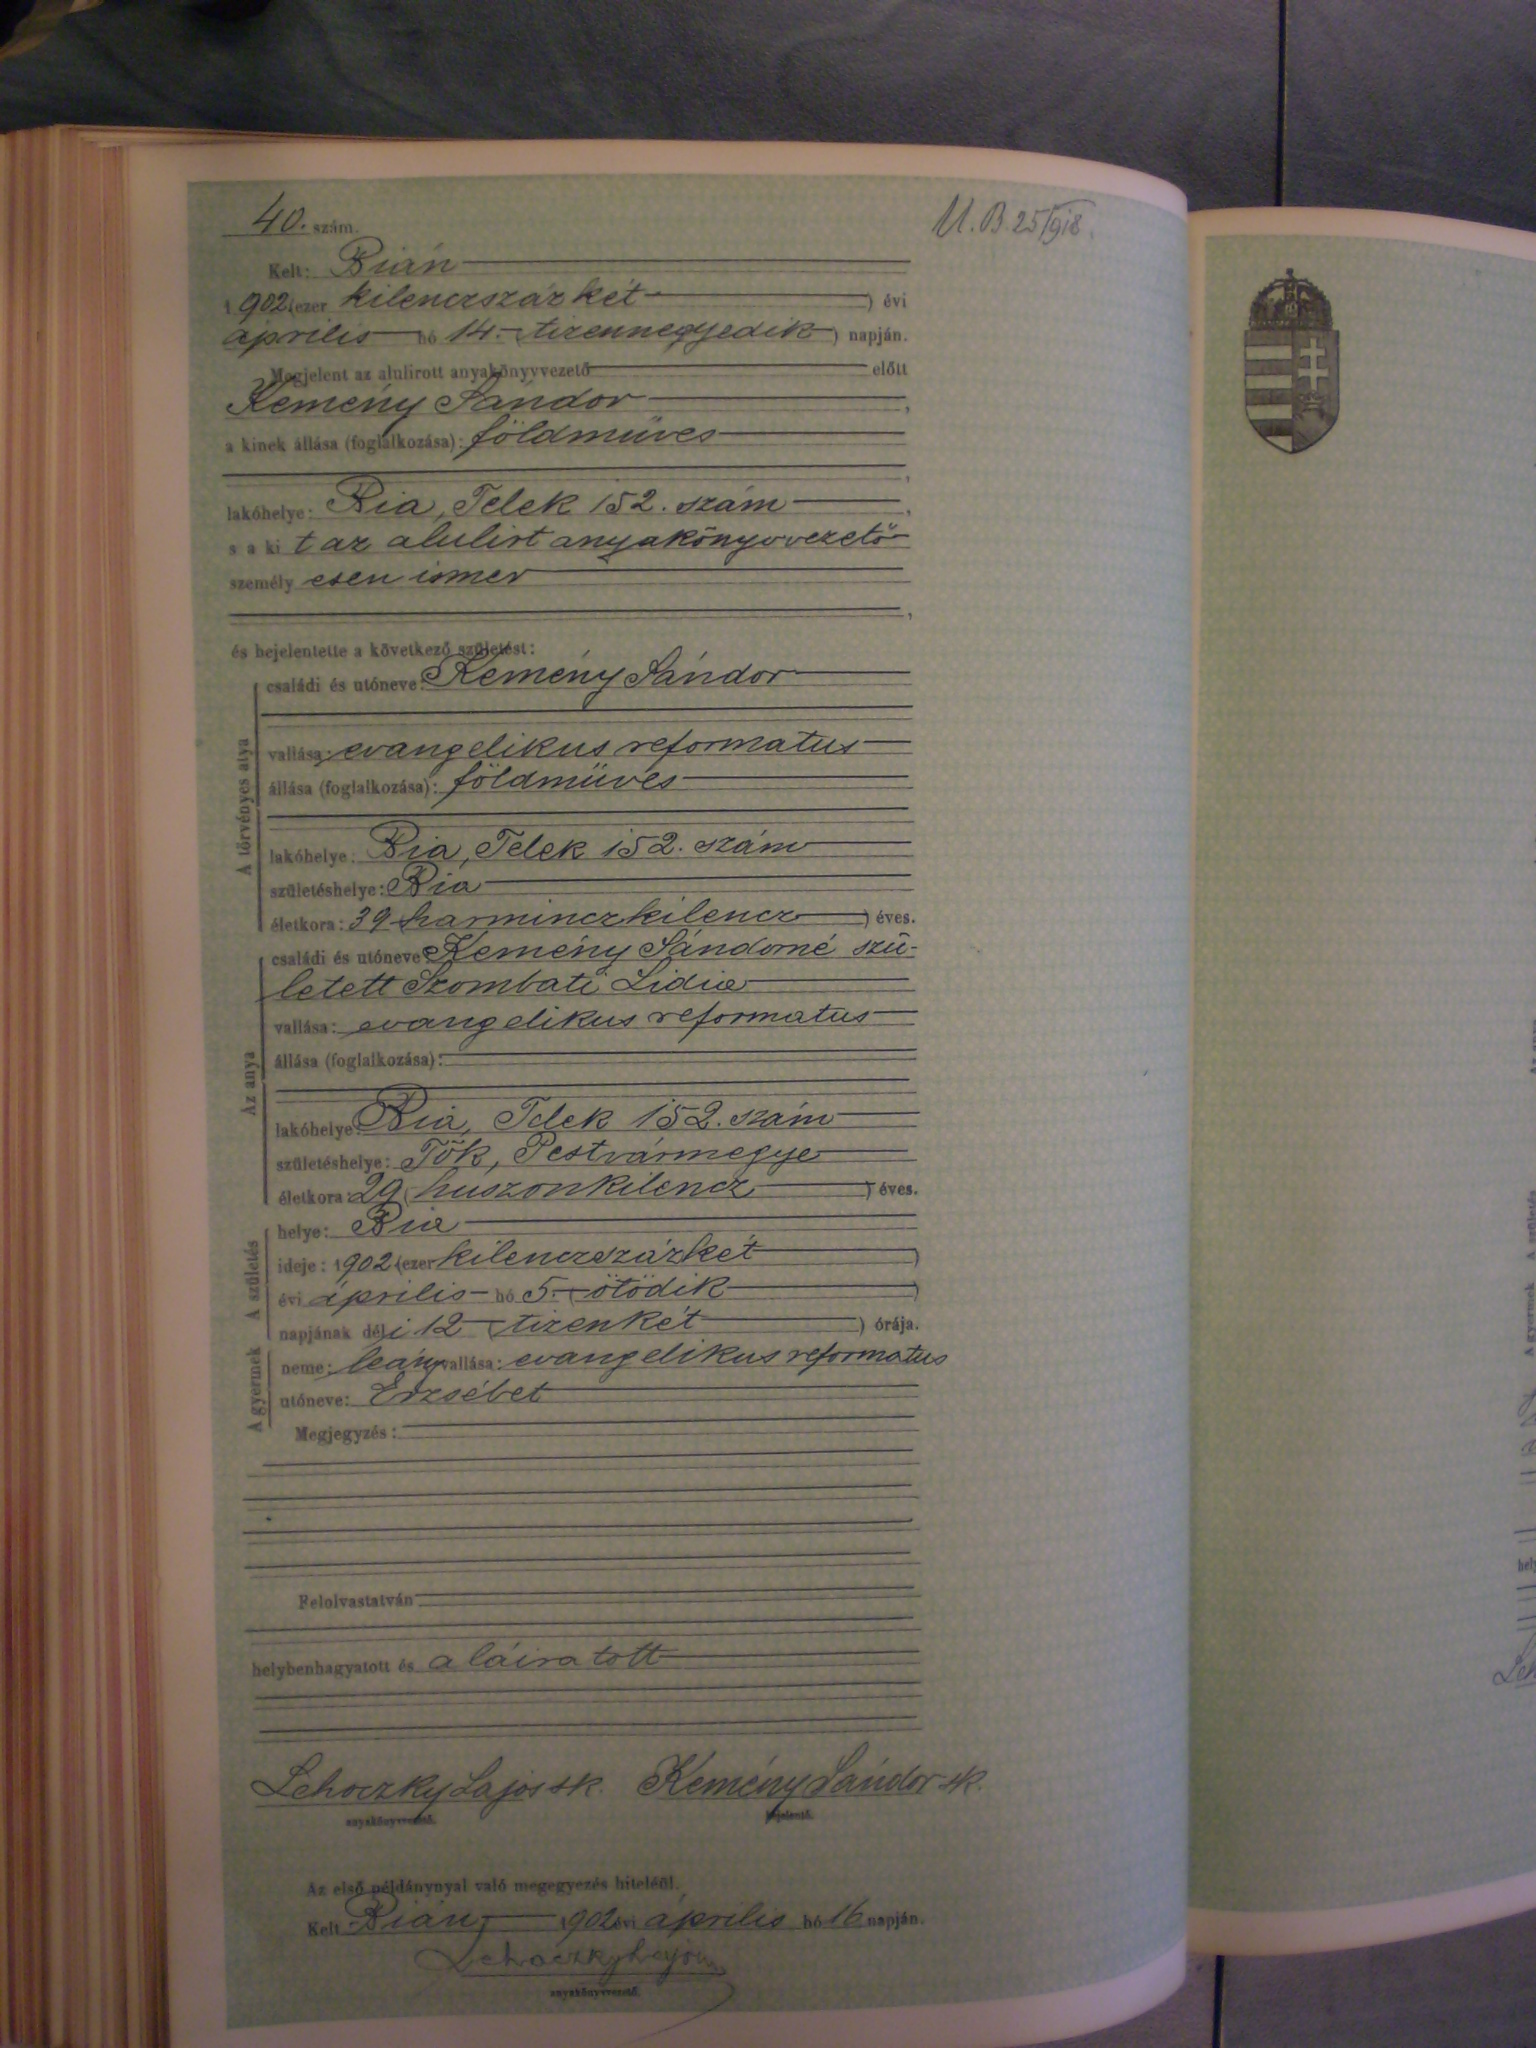 40. szám.
U. B. 25/918.
Kelt: Bián
1902 (ezer kilenczszázkét) évi
április hó 14. (tizennegyedik) napján.
Megjelent az alulirott anyakönyvvezető előtt
Kemény Sándor,
a kinek állása (foglalkozása): földműves
lakóhelye: Bia, Telek 152. szám,
s a ki t az alulirt anyakönyvvezető
személy esen ismer
,
és bejelentette a következő születést:
A törvényes atya
családi és utóneve: Kemény Sándor
vallása: evangelikus reformatus
állása (foglalkozása): földműves
lakóhelye: Bia, Telek 152. szám
születéshelye: Bia
életkora: 39 (harminczkilencz) éves.
Az anya
családi és utóneve: Kemény Sándorné szü-
letett Szombati Lidia
vallása: evangelikus reformatus
állása (foglalkozása):
lakóhelye: Bia, Telek 152. szám
születéshelye: Tök, Pestvármegye
életkora: 29 (huszonkilencz) éves.
A születés
helye: Bia
ideje: 1902 (ezer kilenczszázkét)
évi április hó 5. (ötödik)
napjának dél i 12 (tizenkét) órája.
A gyermek
neme: leány vallása: evangelikus reformatus
utóneve: Erzsébet
Megjegyzés:
Felolvastatván
helybenhagyatott és aláiratott
Lehoczky Lajos sk. Kemény Sándor sk.
anyakönyvvezető. bejelentő.
Az első példánynyal való megegyezés hiteléül.
Kelt Bián, 1902 évi április hó 16 napján.
Lehoczky Lajos
anyakönyvvezető.